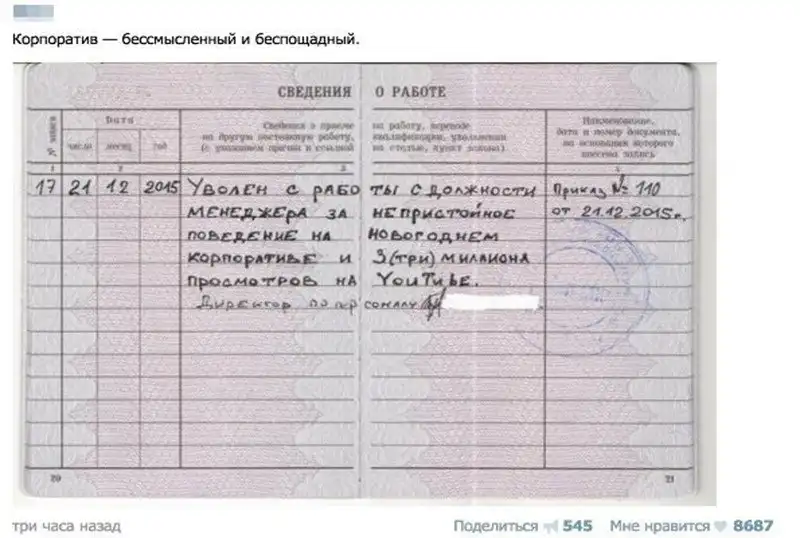 Корпоратив — бессмысленный и беспощадный.
СВЕДЕНИЯ О РАБОТЕ
№ записи
Дата
число месяц год
Сведения о приеме на работу, переводе
на другую постоянную работу, квалификации, увольнении
(с указанием причин и ссылкой на статью, пункт закона)
Наименование,
дата и номер документа,
на основании которого
внесена запись
1 2 3 4
17 21 12 2015 УВОЛЕН С РАБОТЫ С ДОЛЖНОСТИ Приказ № 110
МЕНЕДЖЕРА ЗА НЕПРИСТОЙНОЕ от 21.12.2015г.
ПОВЕДЕНИЕ НА НОВОГОДНЕМ
КОРПОРАТИВЕ И 3(три) МИЛИОНА
ПРОСМОТРОВ НА YOUTUBE.
Директор по персоналу
20 21
три часа назад Поделиться 545 Мне нравится 8687